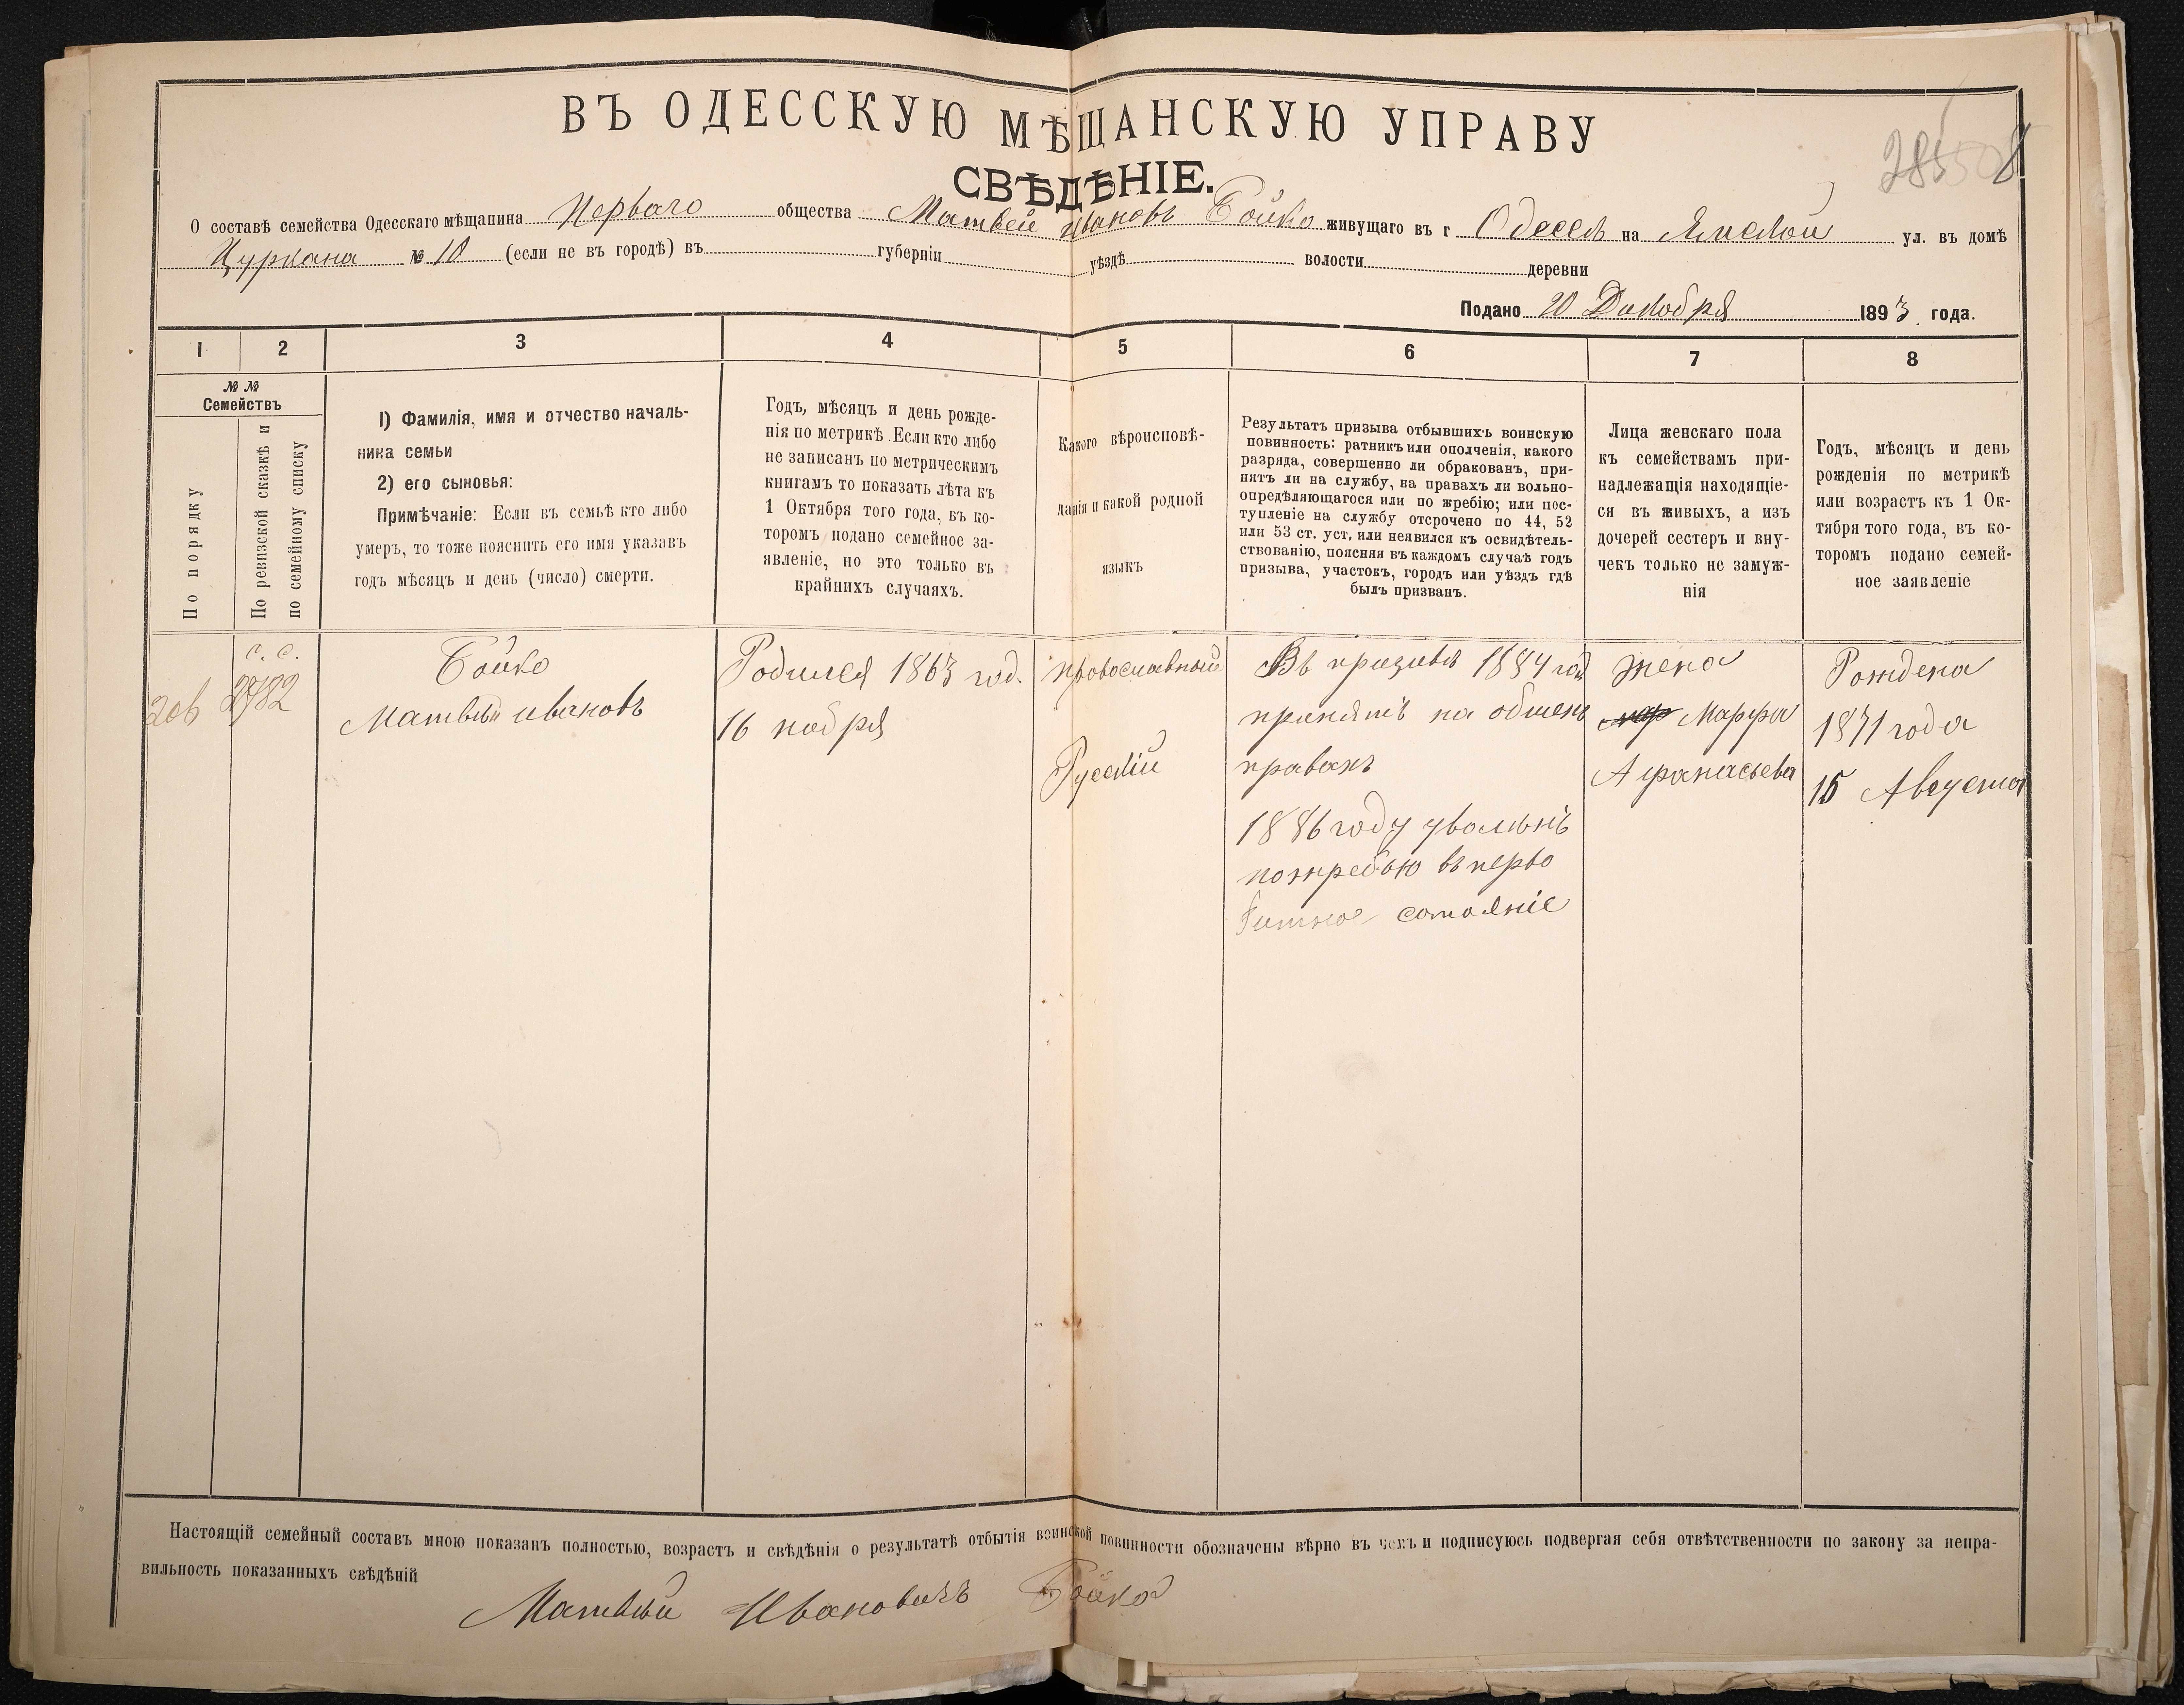 ВЪ ОДЕССКУЮ МѢЩАНСКУЮ УПРАВУ
СВѢДѢНІЕ.
О составѣ семейства Одесскаго мѣщанина Перваго общества Матвей Ивановъ Бойко живущаго въ г Одессѣ на Ямской ул. въ домѣ
Цуркана № 10 (если не въ городѣ) въ губерніи уѣздѣ волости деревни
Подано 20 Декобря 1893 года.
1 2 3 4 5 6 7 8
№ №
Семействъ
По порядку
По ревизской сказкѣ и
по семейному списку
1) Фамилія, имя и отчество началь-
ника семьи
2) его сыновья:
Примѣчаніе: Если въ семьѣ кто либо
умеръ, то тоже пояснить его имя указавъ
годъ мѣсяцъ и день (число) смерти.
Годъ, мѣсяцъ и день рожде-
нія по метрикѣ. Если кто либо
не записанъ по метрическимъ
книгамъ то показать лѣта къ
1 Октября того года, въ ко-
торомъ подано семейное за-
явленіе, но это только въ
крайнихъ случаяхъ.
Какого вѣроисповѣ-
данія и какой родной
языкъ
Результатъ призыва отбывшихъ воинскую
повинность: ратникъ или ополченія, какого
разряда, совершенно ли обракованъ, при-
нятъ ли на службу, на правахъ ли вольно-
опредѣляющагося или по жребію; или пос-
тупленіе на службу отсрочено по 44, 52
или 53 ст. уст, или неявился къ освидѣтель-
ствованію, поясняя въ каждомъ случаѣ годъ
призыва, участокъ, городъ или уѣздъ гдѣ
былъ призванъ.
Лица женскаго пола
къ семействамъ при-
надлежащія находящіе-
ся въ живыхъ, а изъ
дочерей сестеръ и вну-
чекъ только не замуж-
нія
Годъ, мѣсяцъ и день
рожденія по метрикѣ
или возрастъ къ 1 Ок-
тября того года, въ ко-
торомъ подано семей-
ное заявленіе
с. с.
2782
Бойко
Матвѣй Ивановъ
Родился 1863 год.
16 ноября
православный
Русскій
Въ призывѣ 1884 год
принятъ на общехъ
правахъ
1886 году уволенъ
пожребью въ перво
сотояніе
жена
Марфа
Афанасьева
Рождена
1871 года
15 Августа
Настоящій семейный составъ мною показанъ полностью, возрастъ и свѣдѣнія о результатѣ отбытія воинской повинности обозначены вѣрно въ чемъ и подписуюсь подвергая себя отвѣтственности по закону за непра-
вильность показанныхъ свѣдѣній
Матвѣй Ивановичъ Бойко